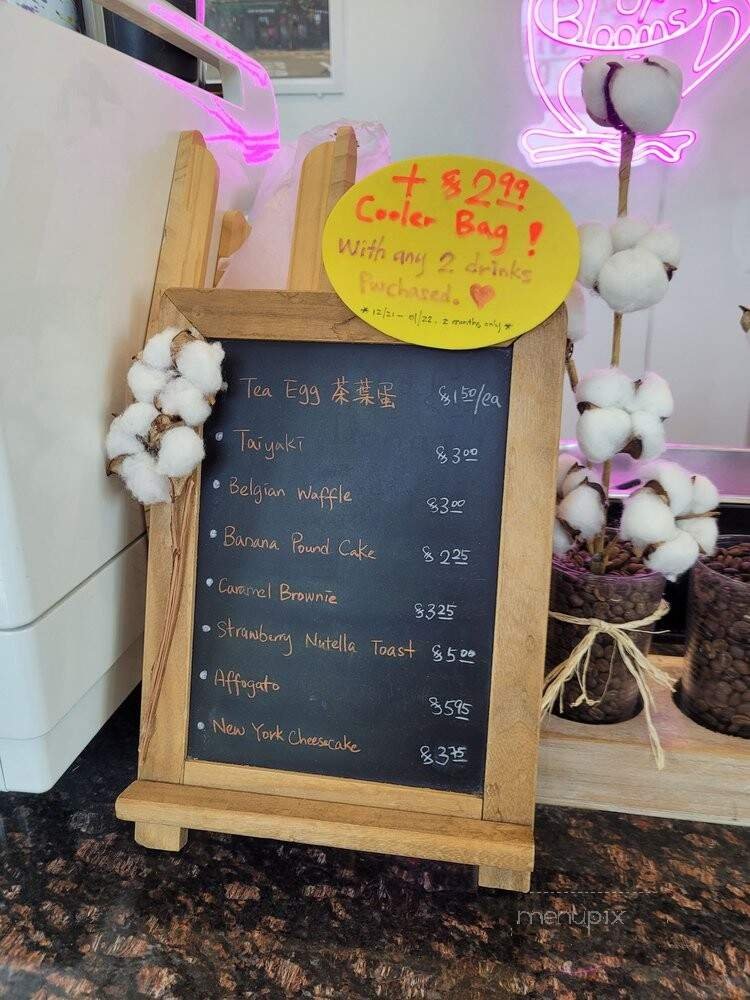 Blooms
+ $2.99
Cooler Bag!
With any 2 drinks
Purchased.
*12/21 - 01/22. 2 months only*
Tea Egg 茶葉蛋 $1.50/ea
Taiyaki $3.00
Belgian Waffle $3.00
Banana Pound Cake $2.25
Caramel Brownie $3.25
Strawberry Nutella Toast $5.00
Affogato $5.95
New York Cheesecake $3.75
menupix